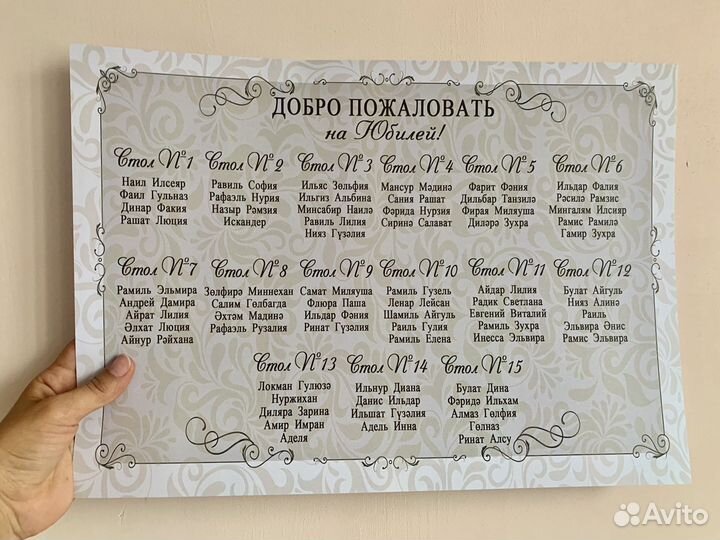 ДОБРО ПОЖАЛОВАТЬ
на Юбилей!
Стол №1
Наил Илсеяр
Фаил Гульназ
Динар Факия
Рашат Люция
Стол №2
Равиль София
Рафаэль Нурия
Назыр Рәмзия
Искандер
Стол №3
Ильяс Зөльфия
Ильгиз Альбина
Минсабир Наилә
Равиль Лилия
Нияз Гүзәлия
Стол №4
Мансур Мәдинә
Сания Рашат
Фәридә Нурзия
Сиринә Салават
Стол №5
Фарит Фәния
Дильбар Танзилә
Фирая Миляуша
Диләрә Зухра
Стол №6
Ильдар Фалия
Рәсилә Рамзис
Мингалям Илсияр
Рамис Рамилә
Гамир Зухра
Стол №7
Рамиль Эльмира
Андрей Дамира
Айрат Лилия
Әлхат Люция
Айнур Рәйхана
Стол №8
Зөлфирә Миннехан
Салим Гөлбагда
Әхтәм Мадинә
Рафаэль Рузалия
Стол №9
Самат Миляуша
Флюра Паша
Ильдар Фәния
Ринат Гүзәлия
Стол №10
Рамиль Гузель
Ленар Лейсан
Шамиль Айгуль
Раиль Гулия
Рамиль Елена
Стол №11
Айдар Лилия
Радик Светлана
Евгений Виталий
Рамиль Зухра
Инесса Эльвира
Стол №12
Булат Айгуль
Нияз Алинә
Раиль
Эльвира Әнис
Рамис Эльвира
Стол №13
Локман Гулюзә
Нуржихан
Диляра Зарина
Амир Имран
Аделя
Стол №14
Ильнур Диана
Данис Ильдар
Ильшат Гүзәлия
Адель Инна
Стол №15
Булат Дина
Фәридә Ильхам
Алмаз Гөлфия
Гөлназ
Ринат Алсу
Avito